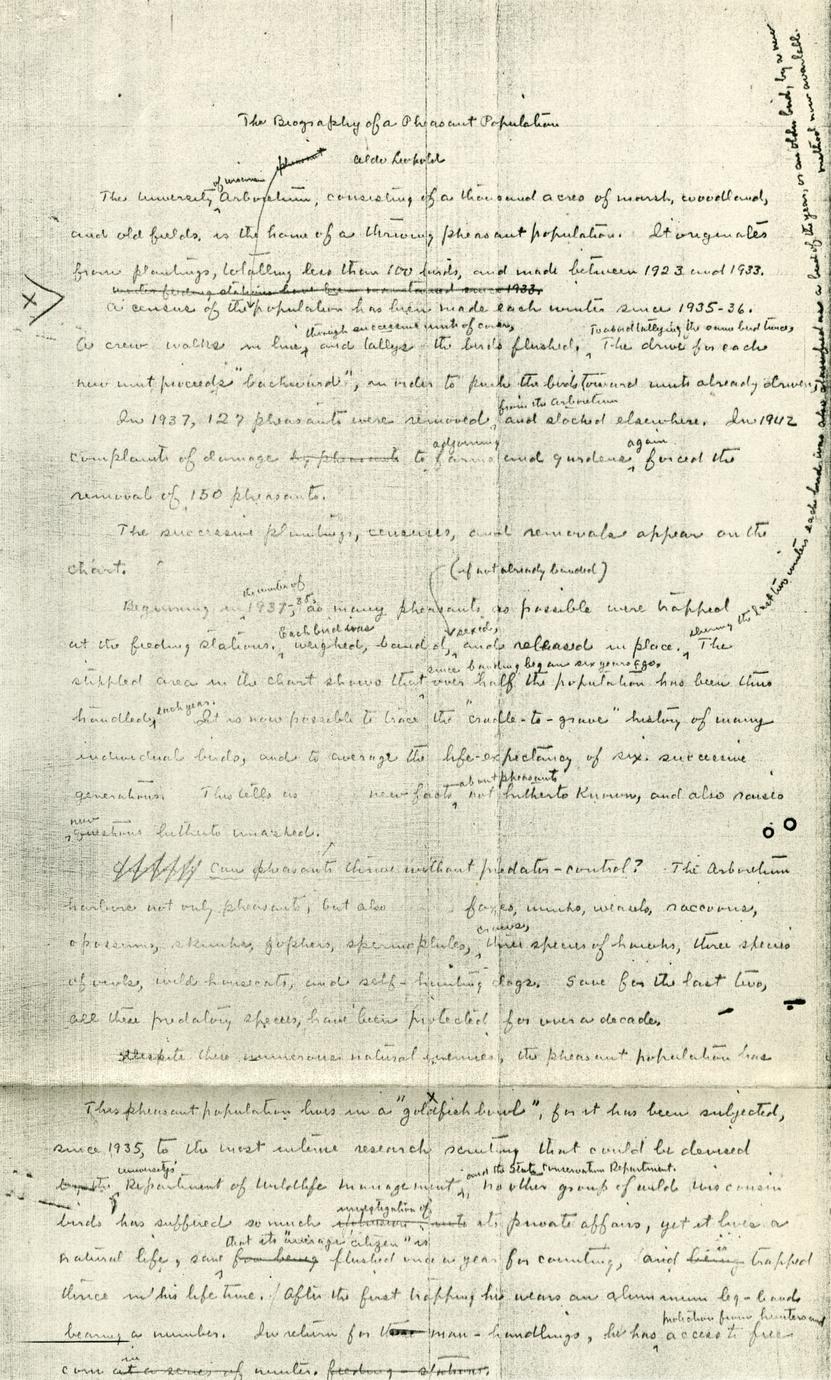 The Biography of a Pheasant Population
pheasant Aldo Leopold
of Wisconsin
The University Arboretum, consisting of a thousand acres of marsh, woodland,
and old fields, is the home of a thriving pheasant population. It originates
from plantings, totalling less than 100 birds, and made between 1923 and 1933.
winter feeding stations have been maintained since 1933.
X
A census of the population has been made each winter since 1935-36.
through successive units of cover, To avoid tallying the same bird twice,
A crew walks in line, and tallys the birds flushed. The drive for each
new unit proceeds "backward", in order to push the birds toward units already driven.
from the Arboretum
In 1937, 127 pheasants were removed and stocked elsewhere. In 1942
adjoining again
complaints of damage by pheasants to farms and gardens forced the
removal of 150 pheasants.
The successive plantings, censuses, and removals appear on the
chart.
(if not already banded)
the number of
Beginning in 1937-38, as many pheasants as possible were trapped
Each bird was sexed,
at the feeding stations. weighed, banded, and released in place. The
during the last two winters each bird was also classified as a bird of the year, or an older bird, by a new
method now available.
since banding began six years ago.
stippled area in the chart shows that over half the population has been thus
each year.
handled. It is now possible to trace the "cradle-to-grave" history of many
individual birds, and to average the life-expectancy of six successive
about pheasants
generations. This tells us new facts not hitherto known, and also raises
new
questions hitherto unasked.
Can pheasants thrive without predator-control? The Arboretum
harbors not only pheasants, but also foxes, minks, weasels, raccoons,
crows,
opossums, skunks, gophers, spermophiles, three species of hawks, three species
of owls, wild housecats, and self-hunting dogs. Save for the last two,
all these predatory species, have been protected for over a decade.
Despite these numerous natural enemies, the pheasant population has
This pheasant population lives in a "goldfish bowl", for it has been subjected,
since 1935, to the most intense research scrutiny that could be devised
University's and the State Conservation Department.
by the Department of Wildlife Management, no other group of wild Wisconsin
investigation of
birds has suffered so much into its private affairs, yet it lives a
that its "average citizen" is
natural life, save for being flushed once a year for counting, and being trapped
is
thrice in his life time. After the first trapping he wears an aluminum leg-band
protection from hunters and
bearing a number. In return for these man-handlings, he has access to free
in
corn at a series of winter. feeding-stations.